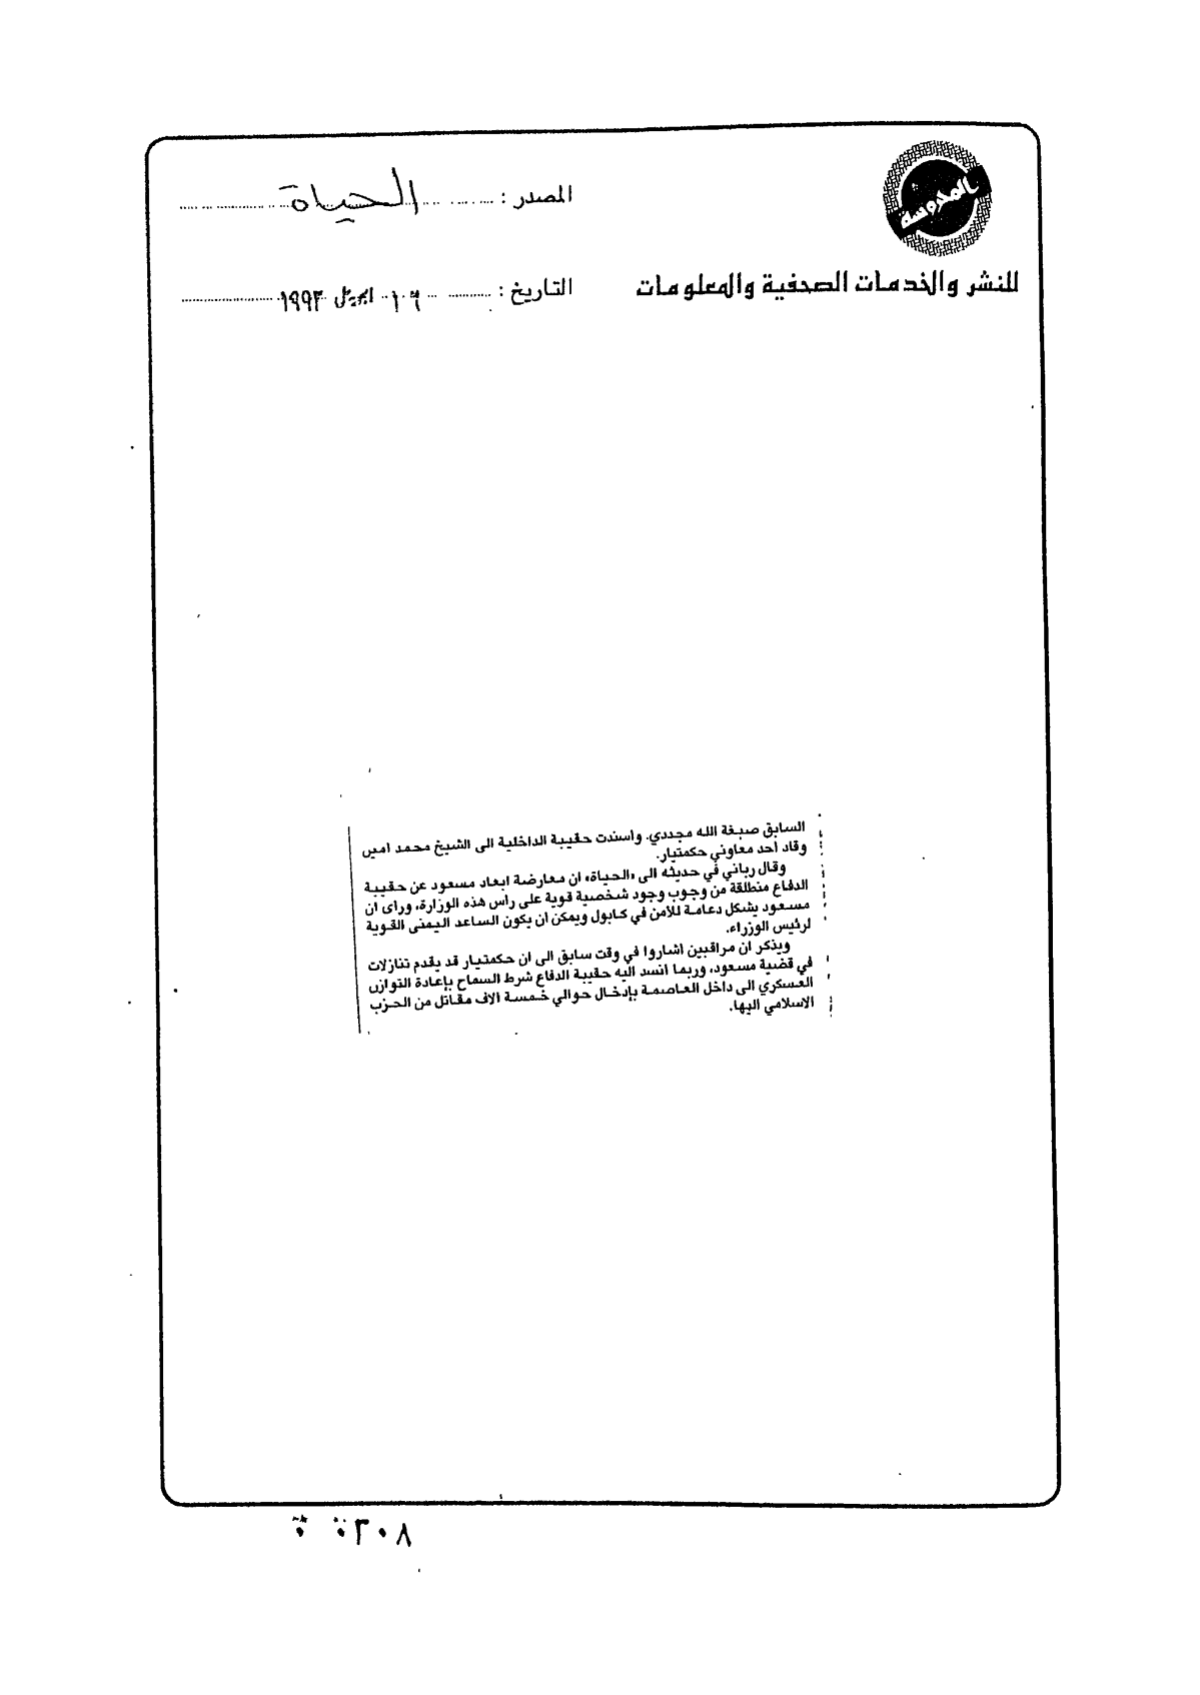 المحروسة
للنشر والخدمات الصحفية والمعلومات
المصدر : الحياة
التاريخ : ١٦ ابريل ١٩٩٣
السابق صبغة الله مجددي. واسندت حقيبة الداخلية الى الشيخ محمد امين
وقاد احد معاوني حكمتيار.
وقال رباني في حديثه الى «الحياة» ان معارضة ابعاد مسعود عن حقيبة
الدفاع منطلقة من وجوب وجود شخصية قوية على راس هذه الوزارة، وراى ان
مسعود يشكل دعامة للامن في كابول ويمكن ان يكون الساعد اليمنى القوية
لرئيس الوزراء.
ويذكر ان مراقبين اشاروا في وقت سابق الى ان حكمتيار قد يقدم تنازلات
في قضية مسعود، وربما انسد اليه حقيبة الدفاع شرط السماح بإعادة التوازن
العسكري الى داخل العاصمة بإدخال حوالي خمسة الاف مقاتل من الحزب
الاسلامي اليها.
٣٠٨